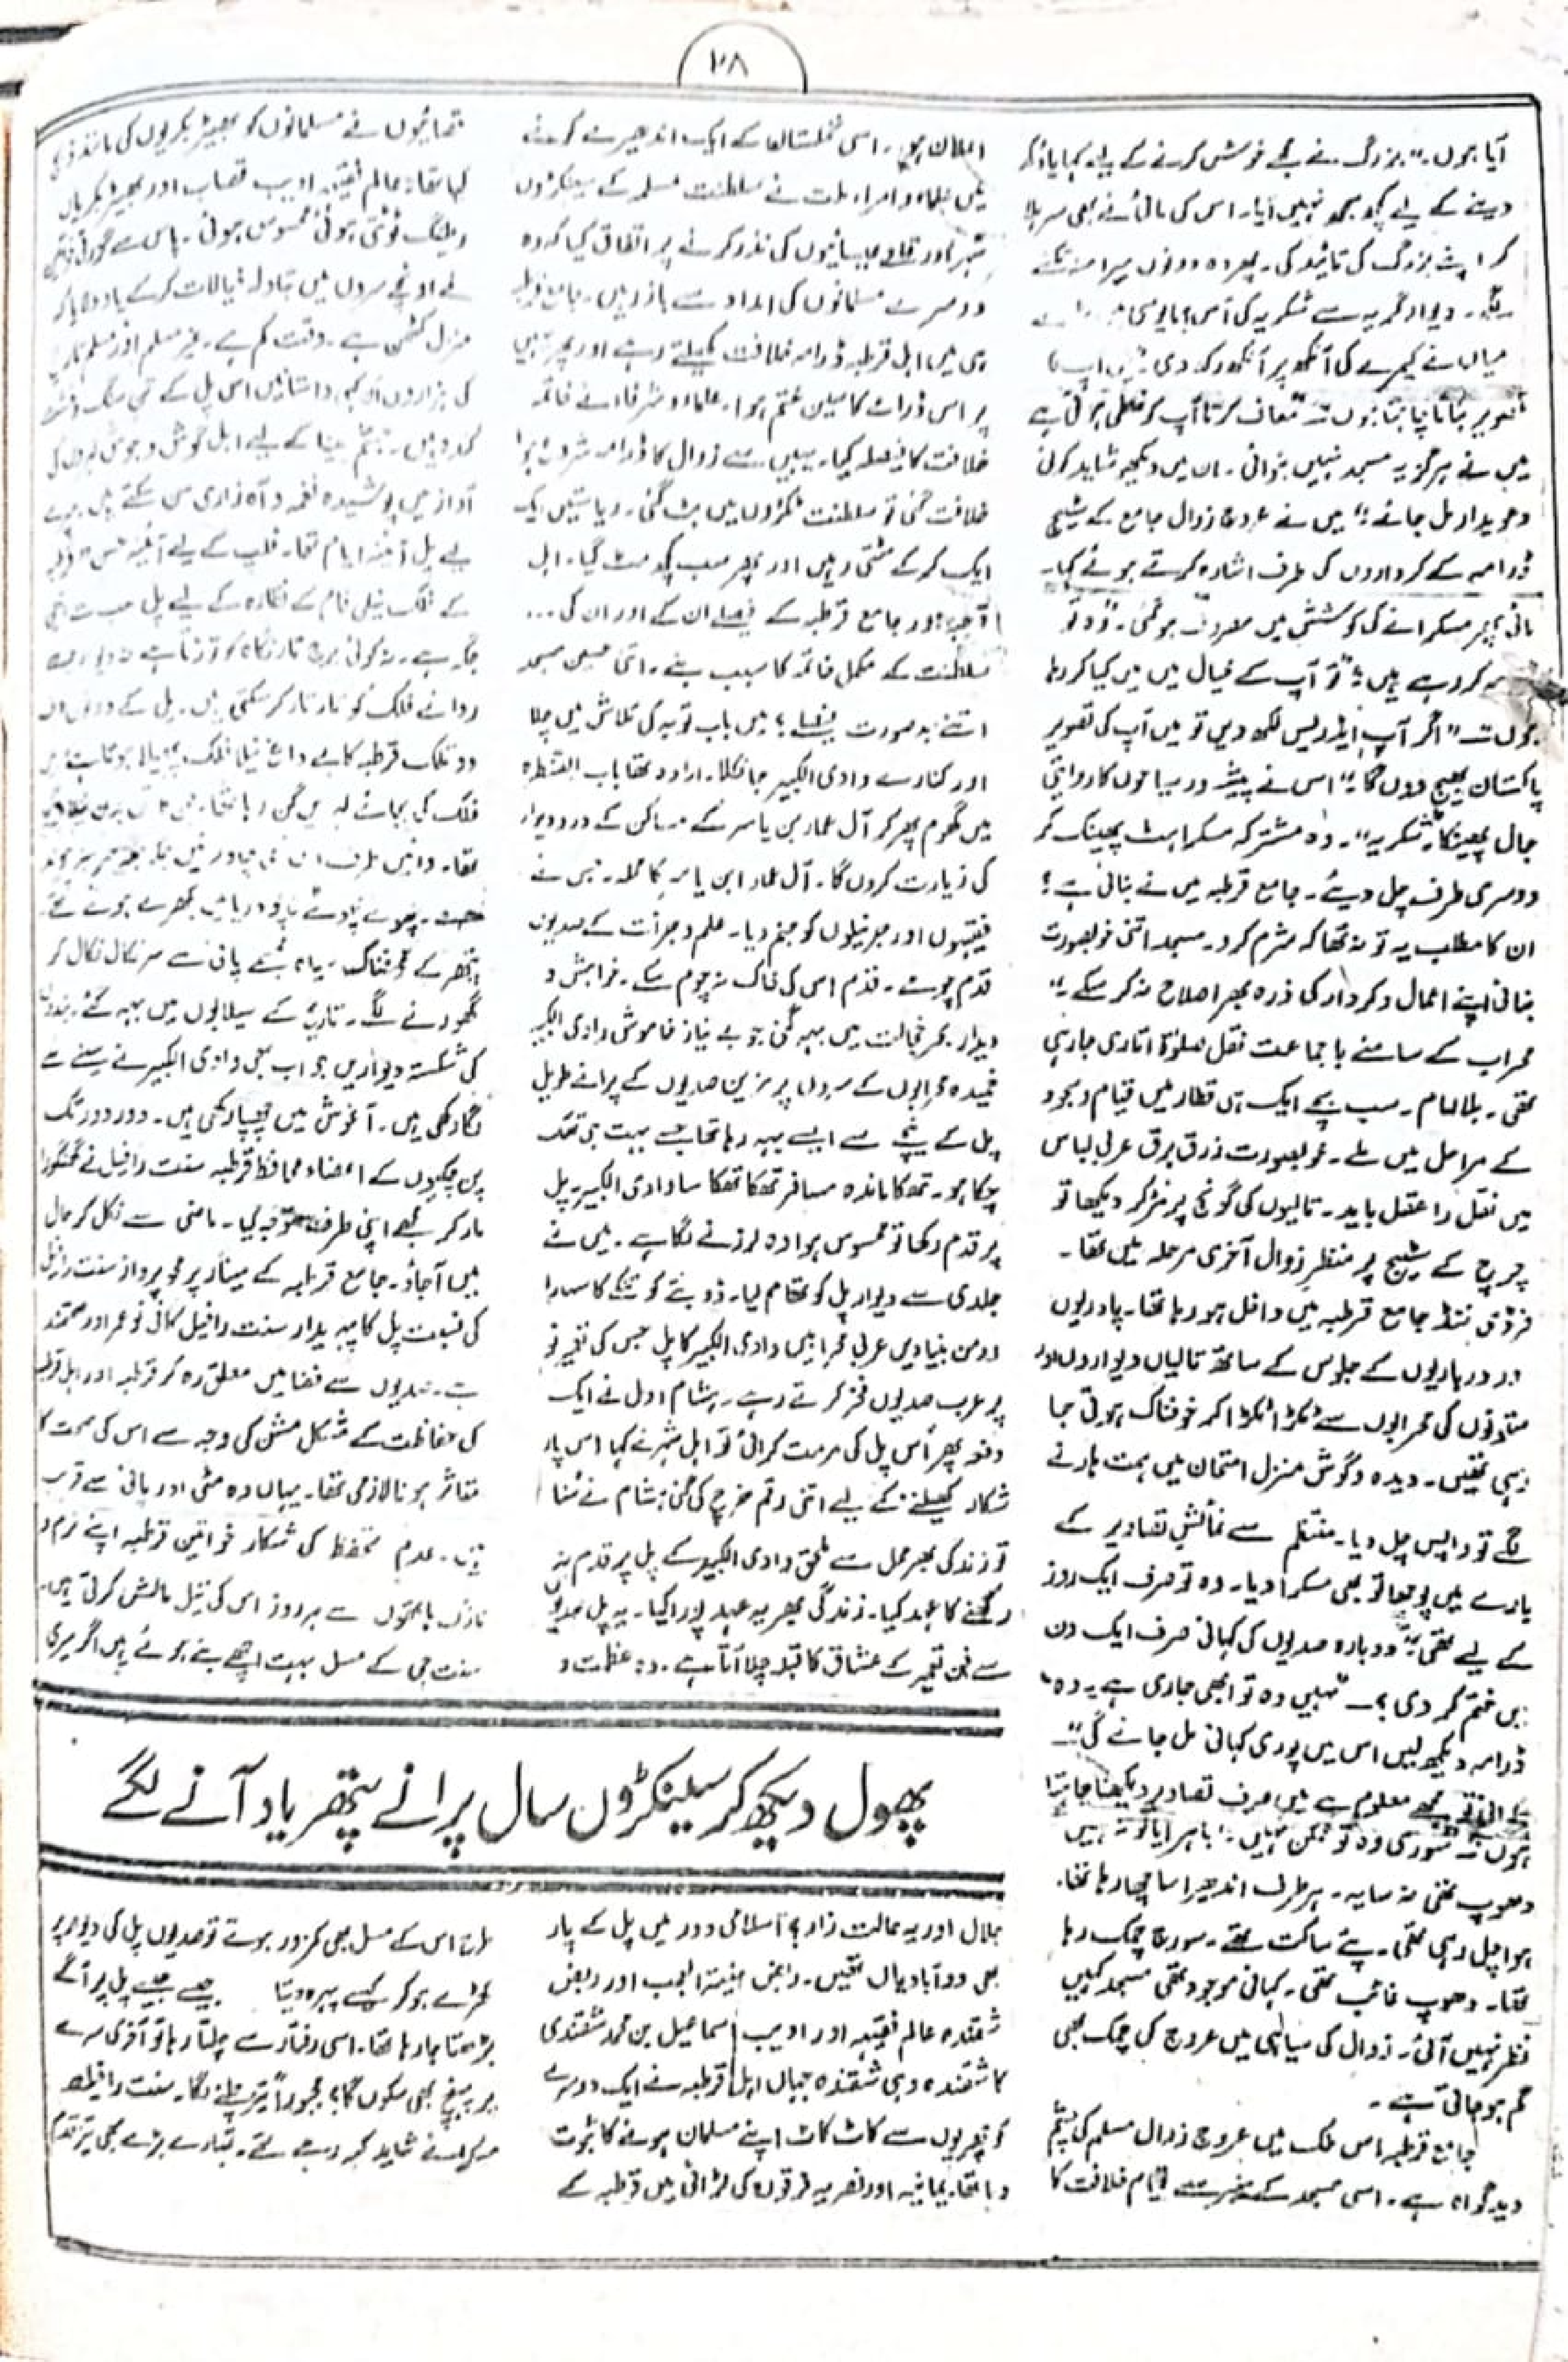 ۲۸
آیا ہوں۔" بزرگ نے مجھے خوش کرنے کے لیے کہا یاد
دینے کے لیے کچھ سمجھ نہیں آیا۔ اس کی مائی نے بھی سر ہلا
کر اپنے بزرگ کی تائید کی۔ پھر وہ دونوں میرا منہ تکنے
لگے۔ دیوار گریہ سے شکریہ کی آس
میاں نے کیمرے کی آنکھ پر آنکھ رکھ دی آپ کا
تصویر بنانا چاہتا ہوں" "معاف کرنا آپ کو غلطی ہوئی ہے
میں نے ہرگز یہ مسجد نہیں بنوائی۔ ان میں دیکھو شاید کوئی
دعویدار مل جائے" میں نے عروج زوال جامع کے سٹیج
ڈرامہ کے کرداروں کی طرف اشارہ کرتے ہوئے کہا۔
مائی پھر مسکرانے کی کوشش میں مصروف ہو گئی۔ "وہ تو
کر رہے ہیں" "تو آپ کے خیال میں میں کیا کر رہا
ہوں" "اگر آپ ایڈریس لکھ دیں تو میں آپ کی تصویر
پاکستان بھیج دوں گا" اس نے پیشہ ور سیاحوں کا روایتی
جال پھینکا "شکریہ"۔ وہ مشترکہ مسکراہٹ پھینک کر
دوسری طرف چل دیئے۔ جامع قرطبہ میں نے بنائی ہے؟
ان کا مطلب یہ تو نہ تھا کہ شرم کرو۔ مسجد اتنی خوبصورت
بنائی اپنے اعمال و کردار کی ذرہ بھر اصلاح نہ کر سکے"
محراب کے سامنے باجماعت نقل صلوٰۃ اتاری جا رہی
تھی۔ بلا امام۔ سب بچے ایک ہی قطار میں قیام و سجود
کے مراحل میں تھے۔ خوبصورت زرق برق عربی لباس
میں نقل را عقل باید۔ تالیوں کی گونج پر مڑ کر دیکھا تو
چرچ کے سٹیج پر منظر زوال آخری مرحلہ میں تھا۔
فرڈی ننڈ جامع قرطبہ میں داخل ہو رہا تھا۔ پادریوں
اور درباریوں کے جلوس کے ساتھ تالیاں دیواروں اور
ستونوں کی محرابوں سے ٹکرا ٹکرا کر خوفناک ہوتی جا
رہی تھیں۔ دیدہ و گوش منزل امتحان میں ہمت ہارنے
لگے تو واپس چل دیا۔ منتظم سے نمائشی تصاویر کے
بارے میں پوچھا تو بھی مسکرا دیا۔ وہ تو صرف ایک روز
کے لیے تھی" "دوبارہ صدیوں کی کہانی صرف ایک دن
میں ختم کر دی"۔ "نہیں وہ تو ابھی جاری ہے۔ وہ"
ڈرامہ دیکھ لیں اس میں پوری کہانی مل جائے گی"۔
مجھے معلوم ہے میں صرف تصاویر دیکھنا چاہتا
ہوں" "سوری وہ تو ممکن نہیں" باہر آیا تو نہ کہیں
دھوپ تھی نہ سایہ۔ ہر طرف اندھیرا سا چھا رہا تھا۔
ہوا چل رہی تھی۔ پتے ساکت تھے۔ سورج چمک رہا
تھا۔ دھوپ غائب تھی۔ کہانی موجود تھی مسجد کہیں
نظر نہیں آئی۔ زوال کی سیاہی میں عروج کی چمک بھی
گم ہو جاتی ہے۔
جامع قرطبہ اس ملک میں عروج زوال مسلم کی چشم
دید گواہ ہے۔ اسی مسجد کے منبر سے قیام خلافت کا
اعلان ہوا۔ اسی نخلستان کے ایک اندھیرے گوشے
میں علماء و امراء ملت نے سلطنت مسلم کے سینکڑوں
شہر اور قلعے عیسائیوں کی نذر کرنے پر اتفاق کیا کہ وہ
دوسرے مسلمانوں کی امداد سے باز رہیں۔ جامع قرطبہ
ہی میں اہل قرطبہ ڈرامہ خلافت کھیلتے رہے اور پھر یہیں
پر اس ڈرامے کا سین ختم ہوا۔ علماء و شرفاء نے خاتمہ
خلافت کا فیصلہ کیا۔ یہیں سے زوال کا ڈرامہ شروع ہوا
خلافت گئی تو سلطنت ٹکڑوں میں بٹ گئی۔ ریاستیں ایک
ایک کر کے مٹتی رہیں اور پھر سب کچھ مٹ گیا۔ اہل
اور جامع قرطبہ کے فیصلے ان کے اور ان کی ...
سلطنت کے مکمل خاتمہ کا سبب بنے۔ اتنی حسین مسجد
اتنے بدصورت فیصلے؟ میں باب توبہ کی تلاش میں چلا
اور کنارے وادی الکبیر جا نکلا۔ ارادہ تھا باب القنطرہ
میں گھوم پھر کر آل عمار بن یاسر کے مساکن کے در و دیوار
کی زیارت کروں گا۔ آل عمار ابن یاسر کا محلہ۔ جس نے
فقیہوں اور جرنیلوں کو جنم دیا۔ علم و جرأت کے صدیوں
قدم چومے۔ قدم اس کی خاک نہ چوم سکے۔ خواہش و
دیدار بحر خجالت میں بہہ گئی جو بے نیاز خاموش وادی الکبیر
خمیدہ محرابوں کے سروں پر مزین صدیوں کے پرانے طویل
پل کے نیچے سے ایسے بہہ رہا تھا جیسے بہت ہی تھک
چکا ہو۔ تھکا ماندہ مسافر تھکا تھکا سا وادی الکبیر۔ پل
پر قدم رکھا تو محسوس ہوا وہ لرزنے لگا ہے۔ میں نے
جلدی سے دیوار پل کو تھام لیا۔ ڈوبتے کو تنکے کا سہارا
رومن بنیادیں عربی محرابیں وادی الکبیر کا پل جس کی تعمیر نو
پر عرب صدیوں فخر کرتے رہے۔ ہشام اول نے ایک
دفعہ پھر اس پل کی مرمت کرائی تو اہل شہر نے کہا اس پار
شکار کھیلنے کے لیے اتنی رقم خرچ کی گئی؟ ہشام نے سنا
تو زندگی بھر محل سے ملحق وادی الکبیر کے پل پر قدم نہ
رکھنے کا عہد کیا۔ زندگی بھر یہ عہد پورا کیا۔ یہ پل صدیوں
سے فن تعمیر کے عشاق کا قبلہ چلا آتا ہے۔ وہ عظمت و
قصائیوں نے مسلمانوں کو بھیڑ بکریوں کی مانند ذبح
کیا تھا۔ عالم فقیہ ادیب قصاب اور بھیڑ بکریاں
ریلنگ ٹوٹتی ہوئی محسوس ہوئی۔ پاس سے گزرتی
نے اونچے سروں میں تبادلہ خیالات کر کے یاد دلایا کہ
منزل کٹھن ہے۔ وقت کم ہے۔ غیر مسلم اور مسلم تاریخ
کی ہزاروں ان کہی داستانیں اس پل کے
کندہ ہیں۔ چشم بینا کے لیے اہل گوش و ہوش لہروں کی
آواز میں پوشیدہ نغمہ و آہ زاری سن سکتے ہیں میرے
لیے پل آئینہ ایام تھا۔ قلب کے لیے آئینہ حسن۔ قرطبہ
کے فلک نیلی فام کے نظارہ کے لیے پل سب سے اچھی
جگہ ہے۔ نہ کوئی برج تار نگاہ کو توڑتا ہے نہ دیواریں
ردائے فلک کو تار تار کر سکتی ہیں۔ پل کے دونوں اور
دور تلک قرطبہ کا بے داغ نیلا فلک پھیلا ہوتا ہے میں
فلک کی بجائے
تھا۔ دائیں طرف
چھوٹے بڑے ٹاپو دریا میں بکھرے ہوئے تھے۔
پتھر کے خوفناک پانی سے سر نکال نکال کر
گھورنے لگے۔ تاریخ کے سیلابوں میں بہہ گئے۔ بندوں
کی شکستہ دیواریں جو اب بھی وادی الکبیر نے سینے سے
لگا رکھی ہیں۔ آغوش میں چھپا رکھی ہیں۔ دور دور تک
پن چکیوں کے اعضاء محافظ قرطبہ سنت رافیل نے کھنگورا
مار کر مجھے اپنی طرف متوجہ کیا۔ ماضی سے نکل کر حال
میں آ جاؤ۔ جامع قرطبہ کے مینار پر محو پرواز سنت رافیل
کی نسبت پل کا پہریدار سنت رافیل کافی نوعمر اور صحتمند
ہے۔ صدیوں سے فضا میں معلق رہ کر قرطبہ اور اہل قرطبہ
کی حفاظت کے مشکل مشن کی وجہ سے اس کی صحت کا
متاثر ہونا لازمی تھا۔ یہاں وہ مٹی اور پانی سے قریب
ہیں۔ عدم تحفظ کی شکار خواتین قرطبہ اپنے نرم و
نازک ہاتھوں سے ہر روز اس کی تیل مالش کرتی ہیں۔
سنت جی کے مسل بہت اچھے بنے ہوئے ہیں اگر میری
پھول دیکھ کر سینکڑوں سال پرانے پتھر یاد آنے لگے
جلال اور یہ حالت زار؟ اسلامی دور میں پل کے پار
بھی دو آبادیاں تھیں۔ رابض منیتہ العجب اور ربض
شقندہ عالم فقیہہ اور ادیب اسماعیل بن محمد شقندی
کا شقندہ وہی شقندہ جہاں اہل قرطبہ نے ایک دوسرے
کو چھریوں سے کاٹ کاٹ اپنے مسلمان ہونے کا ثبوت
دیا تھا۔ یمانیہ اور نصریہ فرقوں کی لڑائی میں قرطبہ کے
طرح اس کے مسل بھی کمزور ہوتے تو صدیوں پل کی دیوار پر
کھڑے ہو کر کیسے پہرہ دیتا جیسے جیسے پل پر آگے
بڑھتا جا رہا تھا۔ اسی رفتار سے چلتا رہا تو آخری سرے
پر پہنچ بھی سکوں گا؟ مجبوراً تیز چلنے لگا۔ سنت رافیل
مسکراتے شاید کہہ رہے تھے۔ تمہارے بڑے بھی تیز قدم